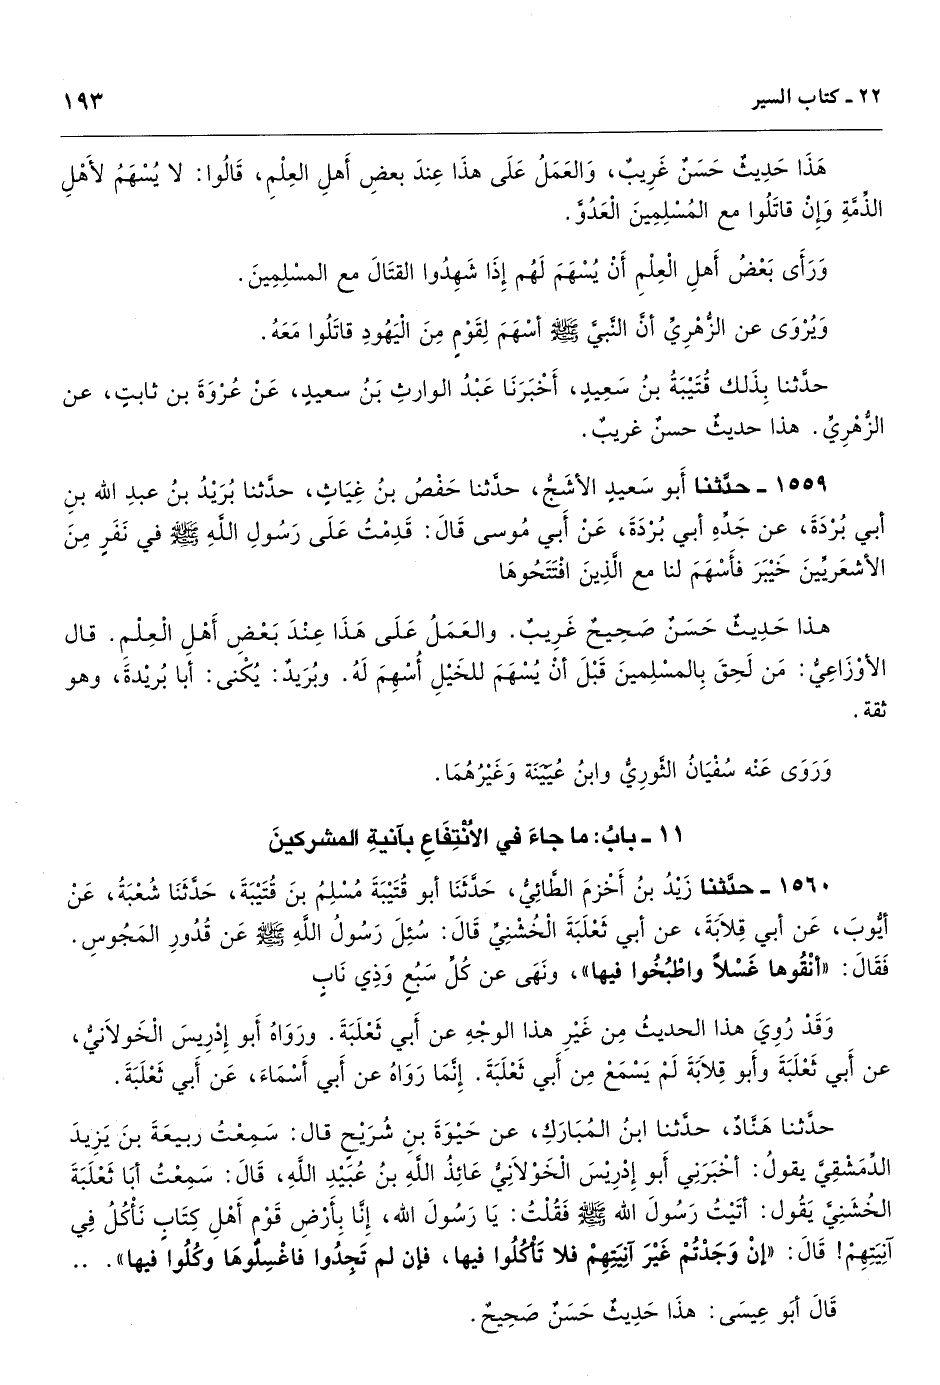 ٢٢ ـ كتاب السير
١٩٣
هَذَا حَدِيثٌ حَسَنٌ غَرِيبٌ، وَالعَمَلُ عَلَى هذا عِندَ بعضِ أهلِ العِلْمِ، قَالُوا: لا يُسْهَمُ لأَهْلِ
الذِّمَّةِ وَإِنْ قاتَلُوا مع المُسْلِمِينَ الْعَدُوَّ.
وَرَأَى بَعْضُ أَهلِ الْعِلْمِ أَنْ يُسْهَمَ لَهُم إِذَا شَهِدُوا القتَالَ مع المسْلِمِينَ.
وَيُرْوَى عن الزُّهْرِيِّ أنَّ النَّبيَّ ﷺ أسْهَمَ لِقَوْمٍ مِنَ الْيَهُودِ قاتَلُوا مَعَهُ.
حدَّثنا بِذَلك قُتَيْبَةُ بنُ سَعِيدٍ، أَخْبَرَنَا عَبْدُ الوارثِ بَنُ سعيدٍ، عَنْ عُرْوَةَ بن ثابتٍ، عن
الزُّهْرِيِّ. هذا حديثٌ حسنٌ غريبٌ.
١٥٥٩ ـ حدَّثنا أَبو سَعيدٍ الأشَجُّ، حدَّثنا حَفْصُ بنُ غِيَاثٍ، حدَّثنا بُرَيْدُ بنُ عبدِ الله بنِ
أبي بُرْدَةَ، عن جَدِّهِ أبي بُرْدَةَ، عَنْ أَبي مُوسى قَالَ: قَدِمْتُ عَلَى رَسُولِ اللَّهِ ﷺ في نَفَرٍ مِنَ
الأشعَرِيِّينَ خَيْبَرَ فَأَسْهَمَ لنا مع الَّذِينَ افْتَتَحُوهَا
هذا حَدِيثٌ حَسَنٌ صَحِيحٌ غَرِيبٌ. والعَمَلُ عَلَى هَذَا عِنْدَ بَعْضِ أَهْلِ العِلْمِ. قال
الأوْزَاعِيُّ: مَن لَحِقَ بِالمسْلِمينَ قَبْلَ أنْ يُسْهَمَ للخَيْلِ أُسْهِمَ لَهُ. وبُرَيدٌ: يُكْنى: أبا بُريْدةَ، وهو
ثقة.
وَرَوَى عَنْه سُفْيَانُ الثَّوريُّ وابنُ عُيَيْنَة وَغَيْرُهُمَا.
١١ ـ بابُ: ما جاءَ في الاُنْتِفَاعِ بآنيةِ المشركينَ
١٥٦٠ ـ حدَّثنا زَيْدُ بنُ أَخْزمَ الطَّائِيُّ، حَدَّثَنَا أبو قُتَيْبَةَ مُسْلِمُ بنُ قُتَيْبَةَ، حَدَّثَنَا شُعْبَةُ، عَنْ
أيُّوبَ، عَن أبي قِلاَبَةَ، عن أبي ثَعْلَبَةَ الْخُشَنِيِّ قَالَ: سُئِلَ رَسُولُ اللَّهِ ﷺ عَن قُدُورِ المَجُوسِ.
فَقَالَ: «أَنْقُوها غَسْلاً واطْبُخُوا فيها»، ونَهَى عن كُلِّ سَبُعٍ وَذِي نَابٍ
وَقَدْ رُوِيَ هذا الحديثُ مِن غَيْرِ هذا الوجْهِ عن أبي ثَعْلَبَةَ. ورَوَاهُ أبو إِدْرِيسَ الْخَولاَنيُّ،
عن أَبي ثَعْلَبَةَ وأبو قِلابَةَ لَمْ يَسْمَعْ مِن أبي ثَعْلَبَةَ. إِنَّمَا رَوَاهُ عن أبي أَسْمَاءَ، عَن أبي ثَعْلَبَةَ.
حدَّثنا هَنَّادٌ، حدَّثنا ابنُ المُبَارَكِ، عن حَيْوَةَ بنِ شُرَيْحٍ قال: سَمِعْتُ ربيعَةَ بنَ يَزِيدَ
الدِّمَشْقِيَّ يقولُ: أخْبَرَنِي أبو إِدْرِيْسَ الْخَوْلاَنِيُّ عَائِذُ اللَّهِ بنُ عُبَيْدِ اللَّهِ، قَالَ: سَمِعْتُ أبَا ثَعْلَبَةَ
الخُشَنِيَّ يَقُول: أتَيْتُ رَسُولَ الله ﷺ فَقُلْتُ: يَا رَسُولَ الله، إِنَّا بِأَرْضِ قَوْمٍ أهْلِ كِتَابٍ نَأْكُلُ فِي
آنِيَتِهِمْ! قَالَ: «إِنْ وَجَدْتُمْ غَيْرَ آنِيَتِهِمْ فلا تَأْكُلُوا فيها، فإن لم تَجِدُوا فاغْسِلُوهَا وكُلُوا فيها». ..
قَالَ أَبو عِيسَى: هذَا حَدِيثٌ حَسَنٌ صَحِيحٌ.